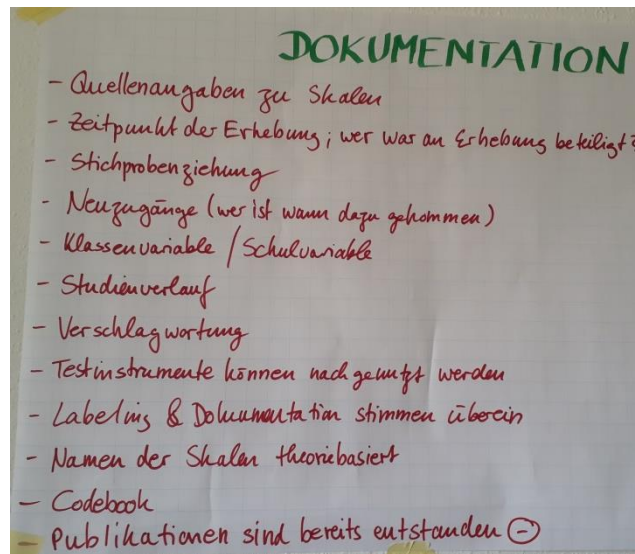 DOKUMENTATION
- Quellenangaben zu Skalen
- Zeitpunkt der Erhebung; wer war an Erhebung beteiligt?
- Stichprobenziehung
- Neuzugänge (wer ist wann dazu gekommen)
- Klassenvariable / Schulvariable
- Studienverlauf
- Verschlagwortung
- Testinstrumente können nachgenutzt werden
- Labeling & Dokumentation stimmen überein
- Namen der Skalen theoriebasiert
- Codebook
- Publikationen sind bereits entstanden (-)